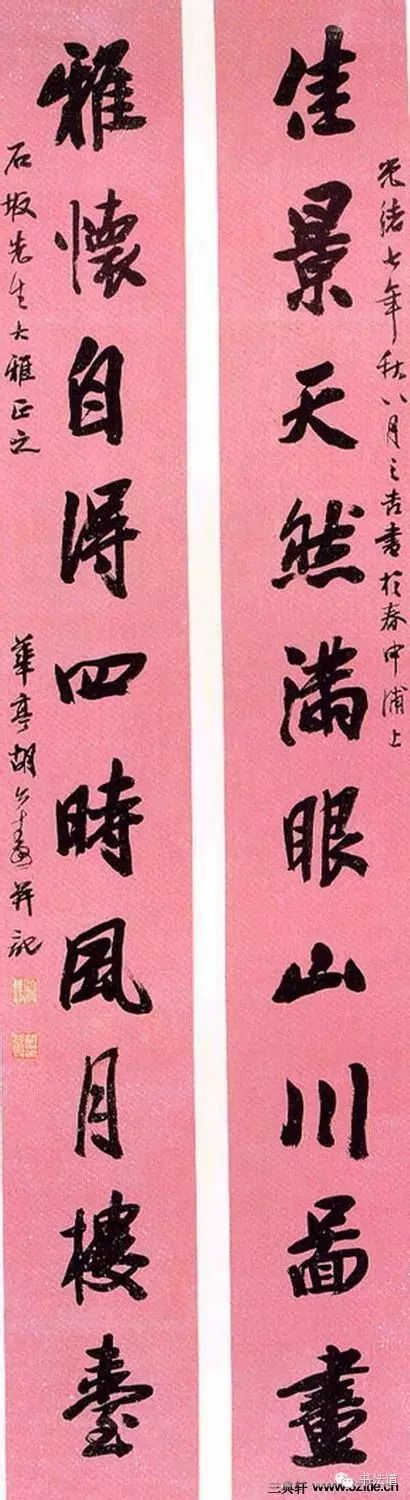 光緒七年秋八月之吉書於春申浦上
佳景天然滿眼山川圖畫
雅懷自得四時風月樓臺
石坂先生大雅正之
華亭胡公壽并記
三典轩
书法道